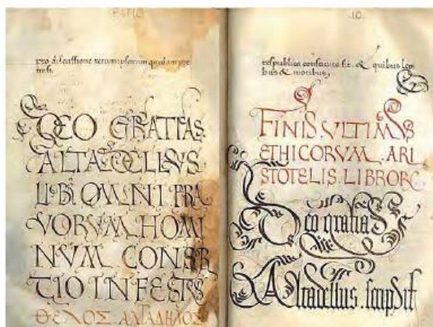 pro discussione rerum
DEO GRATIAS
ALTADELLVS
LIBI OMNI PRA
VORVM HOMI
NVM CONSOR
TIO INFESTVS
respublica constituta sit & quibus le
bus & moribus.
FINIS VLTIMVS
ETHICORVM ARI
STOTELIS LIBRORV
Deo gratias
Altadellus scripsit